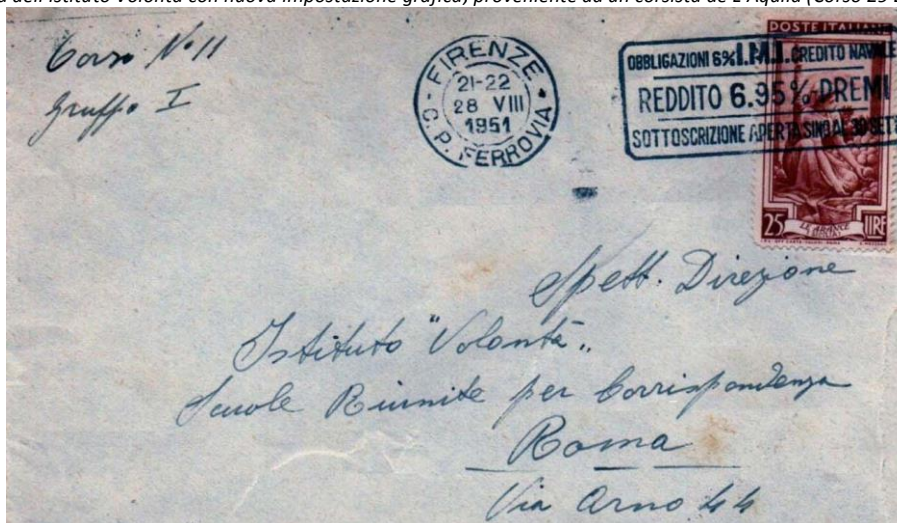 dell'Istituto Volontà con nuova impostazione grafica, proveniente da un corsista de L'Aquila (Corso
Corso No 11
Gruppo I
FIRENZE
21-22
28 VIII
1951
C. P. FERROVIA
OBBLIGAZIONI 6% I.M.I. CREDITO NAVALE
REDDITO 6.95% PREMI
SOTTOSCRIZIONE APERTA SINO AL 30 SETT
POSTE ITALIANE
25 LIRE
LE ARANCE
Spett. Direzione
Istituto "Volontà"
Scuole Riunite per Corrispondenza
Roma
Via Arno 44